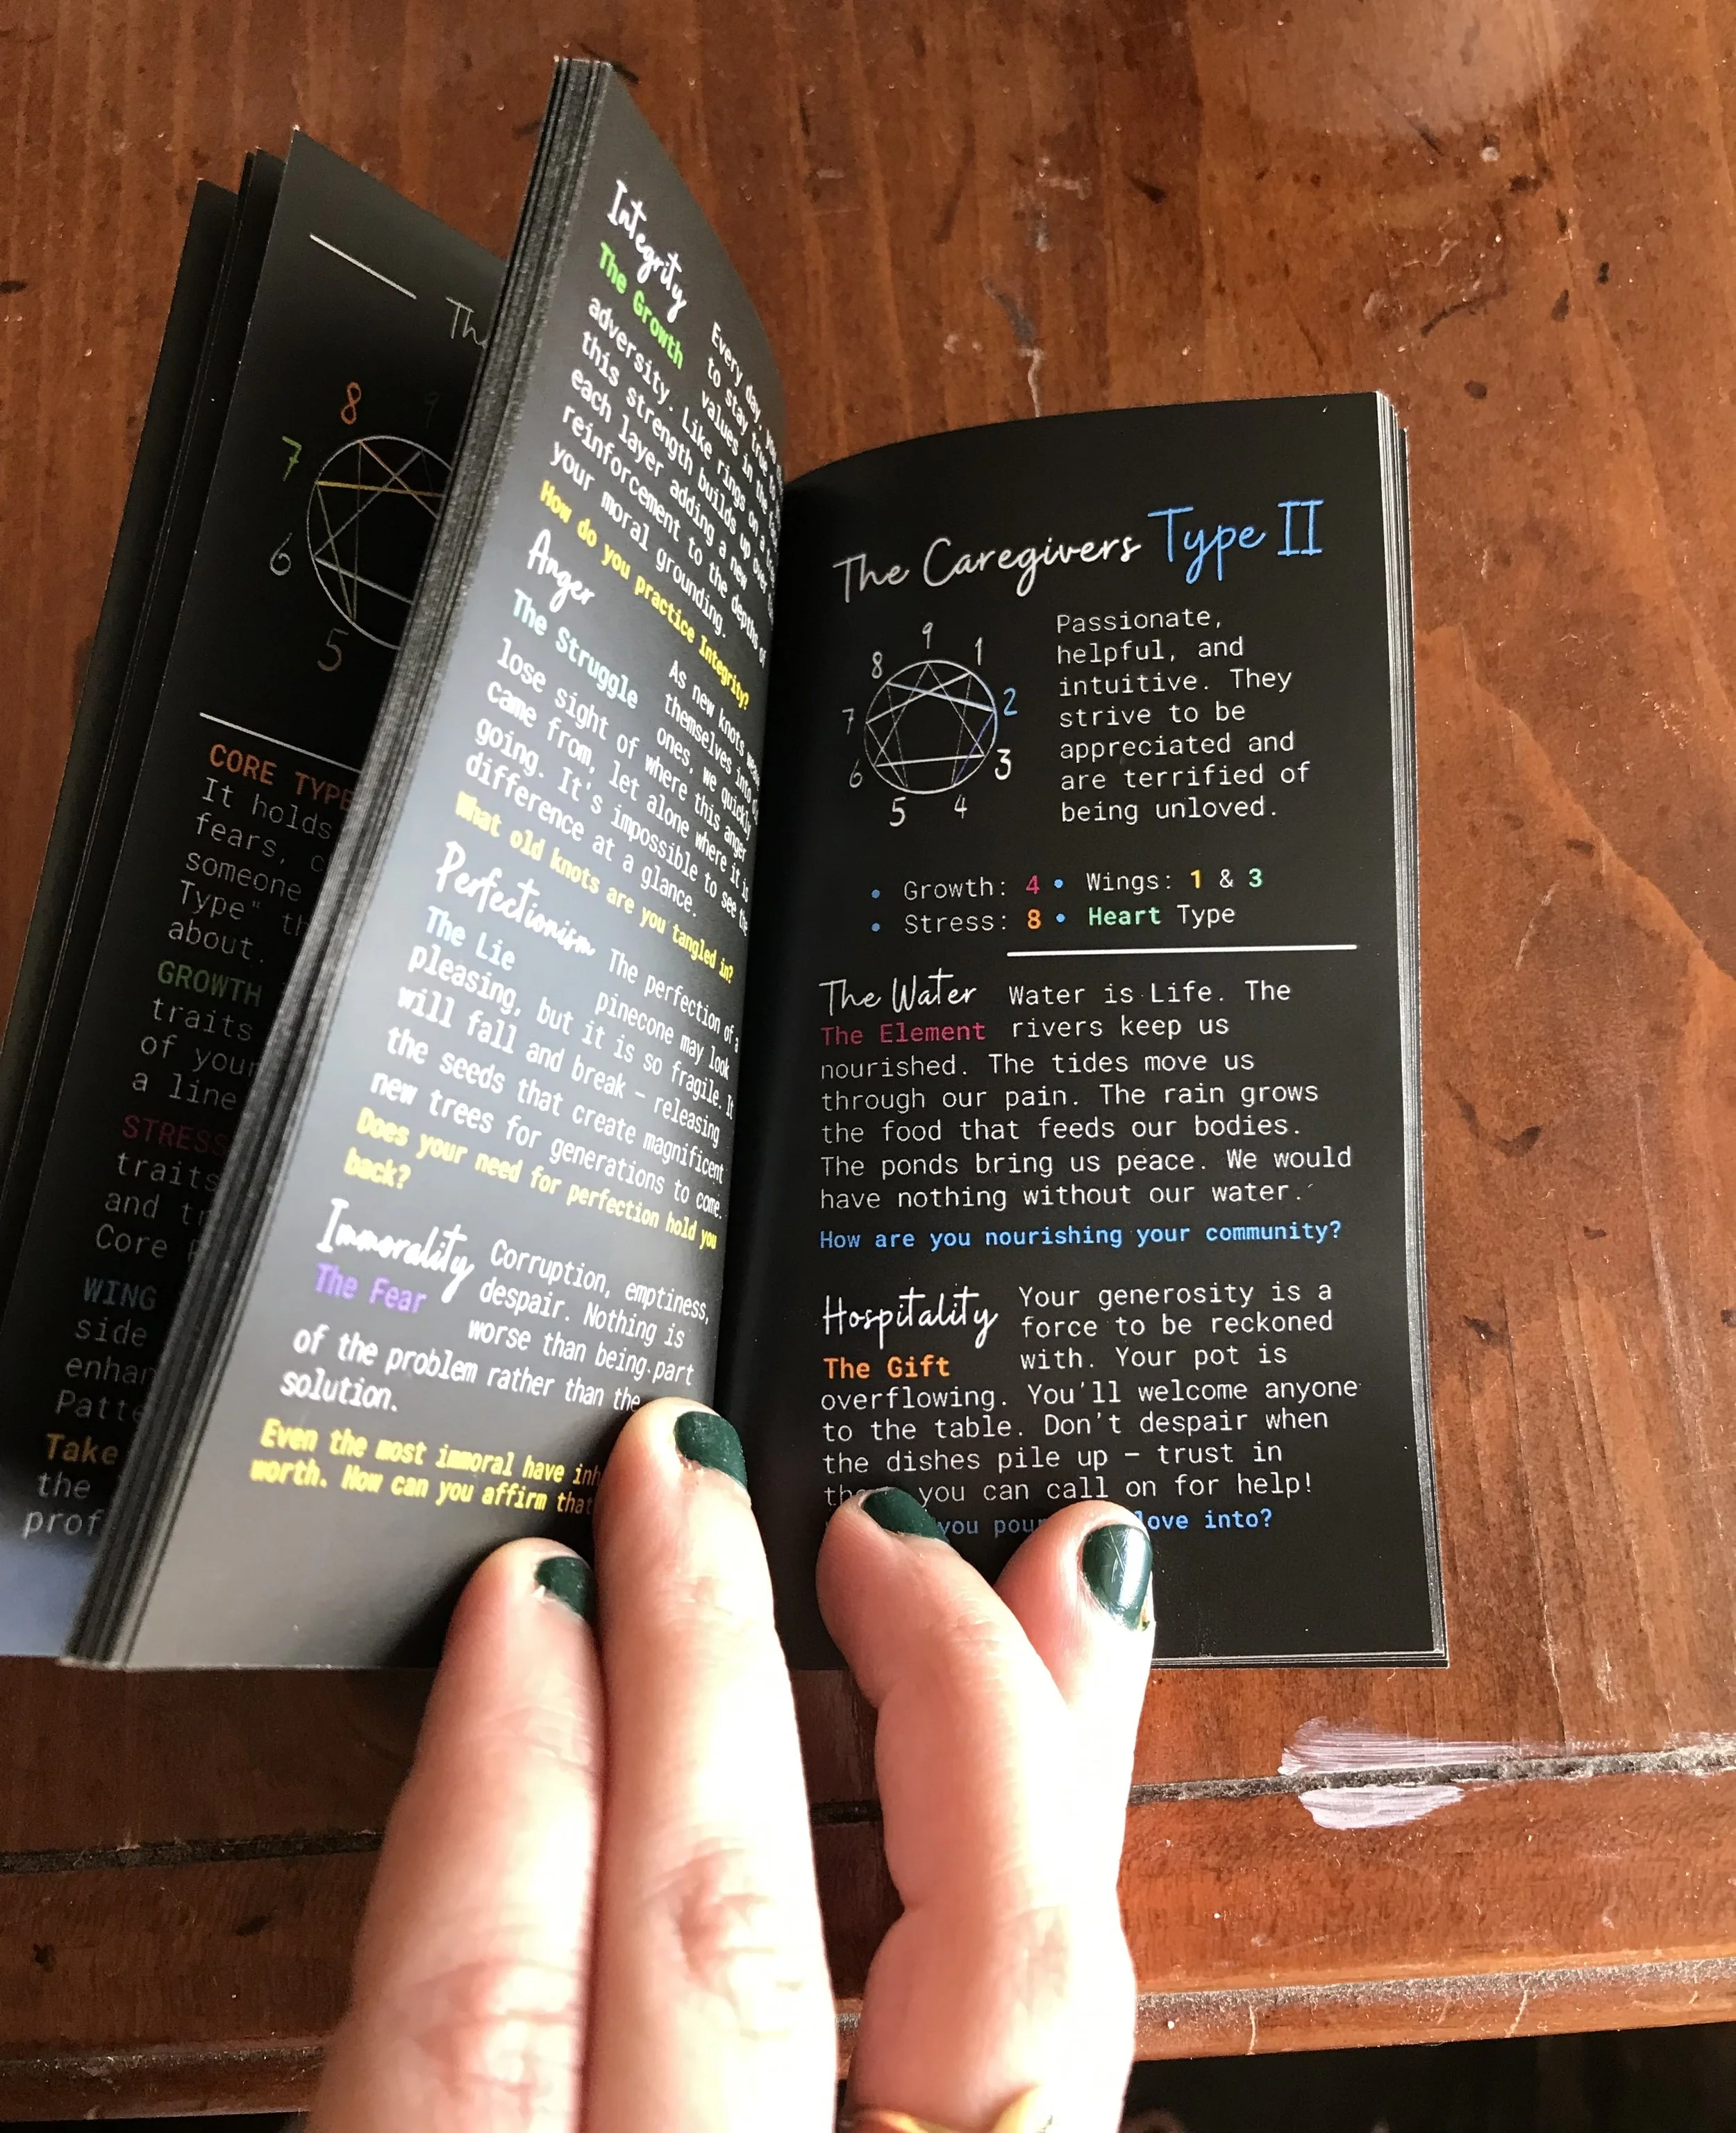 Th
8
9
7
6
5
CORE TYPE
It holds
fears,
someone
Type"
about.
GROWTH
traits
of your
a line
STRESS
traits
and
Core
WING
side
Take
the
Integrity
The Growth
Every day,
to stay true
values in the
adversity. Like rings on a
this strength builds up over
each layer adding a new
reinforcement to the depths of
your moral grounding.
How do you practice Integrity?
Anger
The Struggle
As new knots
themselves into
ones, we quickly
lose sight of where this anger
came from, let alone where it is
going. It's impossible to see the
difference at a glance.
What old knots are you tangled in?
Perfectionism
The Lie
The perfection of a
pinecone may look
pleasing, but it is so fragile. It
will fall and break – releasing
the seeds that create magnificent
new trees for generations to come.
Does your need for perfection hold you
back?
Immorality
The Fear
Corruption, emptiness,
despair. Nothing is
worse than being part
of the problem rather than the
solution.
Even the most immoral have
worth. How can you affirm that
The Caregivers Type II
9
8
1
7
2
6
3
5
4
Passionate,
helpful, and
intuitive. They
strive to be
appreciated and
are terrified of
being unloved.
• Growth: 4 • Wings: 1 & 3
• Stress: 8 • Heart Type
The Water
The Element
Water is Life. The
rivers keep us
nourished. The tides move us
through our pain. The rain grows
the food that feeds our bodies.
The ponds bring us peace. We would
have nothing without our water.
How are you nourishing your community?
Hospitality
The Gift
Your generosity is a
force to be reckoned
with. Your pot is
overflowing. You'll welcome anyone
to the table. Don't despair when
the dishes pile up – trust in
you can call on for help!
you pour love into?